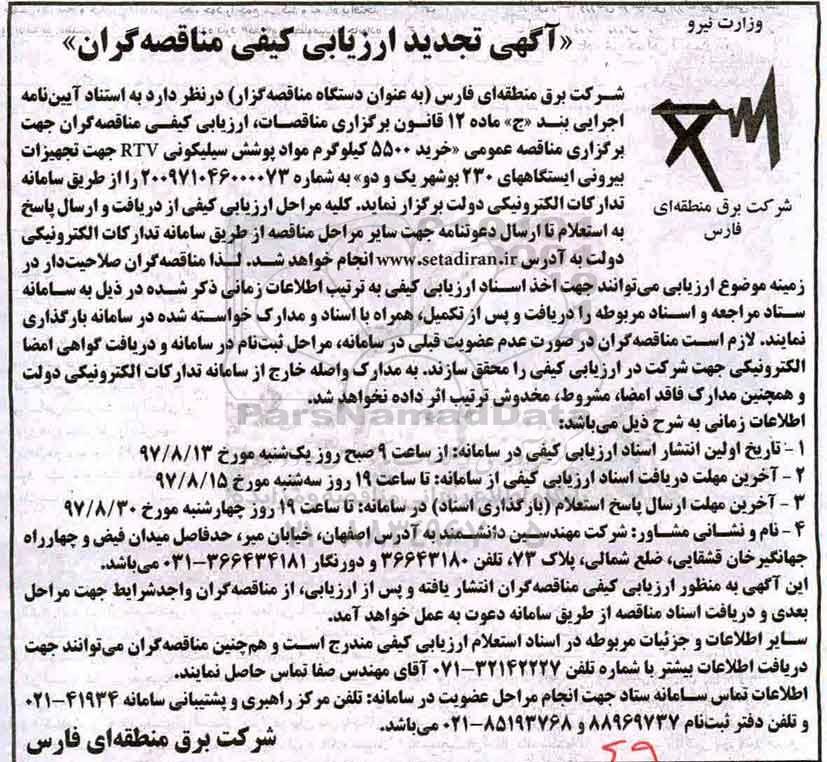 وزارت نیرو
«آگهی تجدید ارزیابی کیفی مناقصه‌گران»
شرکت برق منطقه‌ای
فارس
شرکت برق منطقه‌ای فارس (به عنوان دستگاه مناقصه‌گزار) درنظر دارد به استناد آیین‌نامه
اجرایی بند «ج» ماده ۱۲ قانون برگزاری مناقصات، ارزیابی کیفی مناقصه‌گران جهت
برگزاری مناقصه عمومی «خرید ۵۵۰۰ کیلوگرم مواد پوشش سیلیکونی RTV جهت تجهیزات
بیرونی ایستگاههای ۲۳۰ بوشهر یک و دو» به شماره ۲۰۰۹۷۱۰۴۶۰۰۰۰۷۳ را از طریق سامانه
تدارکات الکترونیکی دولت برگزار نماید. کلیه مراحل ارزیابی کیفی از دریافت و ارسال پاسخ
به استعلام تا ارسال دعوتنامه جهت سایر مراحل مناقصه از طریق سامانه تدارکات الکترونیکی
دولت به آدرس www.setadiran.ir انجام خواهد شد. لذا مناقصه‌گران صلاحیت‌دار در
زمینه موضوع ارزیابی می‌توانند جهت اخذ اسناد ارزیابی کیفی به ترتیب اطلاعات زمانی ذکر شده در ذیل به سامانه
ستاد مراجعه و اسناد مربوطه را دریافت و پس از تکمیل، همراه با اسناد و مدارک خواسته شده در سامانه بارگذاری
نمایند. لازم است مناقصه‌گران در صورت عدم عضویت قبلی در سامانه، مراحل ثبت‌نام در سامانه و دریافت گواهی امضا
الکترونیکی جهت شرکت در ارزیابی کیفی را محقق سازند. به مدارک واصله خارج از سامانه تدارکات الکترونیکی دولت
و همچنین مدارک فاقد امضا، مشروط، مخدوش ترتیب اثر داده نخواهد شد.
ParsNamadData
اطلاعات زمانی به شرح ذیل می‌باشد:
۱- تاریخ اولین انتشار اسناد ارزیابی کیفی در سامانه: از ساعت ۹ صبح روز یک‌شنبه مورخ ۹۷/۸/۱۳
۲- آخرین مهلت دریافت اسناد ارزیابی کیفی از سامانه: تا ساعت ۱۹ روز سه‌شنبه مورخ ۹۷/۸/۱۵
۳- آخرین مهلت ارسال پاسخ استعلام (بارگذاری اسناد) در سامانه: تا ساعت ۱۹ روز چهارشنبه مورخ ۹۷/۸/۳۰
۴- نام و نشانی مشاور: شرکت مهندسین دانشمند به آدرس اصفهان، خیابان میر، حدفاصل میدان فیض و چهارراه
جهانگیرخان قشقایی، ضلع شمالی، پلاک ۷۳، تلفن ۳۶۶۴۳۱۸۰ و دورنگار ۳۶۶۴۳۴۱۸۱-۰۳۱ می‌باشد.
این آگهی به منظور ارزیابی کیفی مناقصه‌گران انتشار یافته و پس از ارزیابی، از مناقصه‌گران واجدشرایط جهت مراحل
بعدی و دریافت اسناد مناقصه از طریق سامانه دعوت به عمل خواهد آمد.
سایر اطلاعات و جزئیات مربوطه در اسناد استعلام ارزیابی کیفی مندرج است و هم‌چنین مناقصه‌گران می‌توانند جهت
دریافت اطلاعات بیشتر با شماره تلفن ۳۲۱۴۲۲۲۷-۰۷۱ آقای مهندس صفا تماس حاصل نمایند.
اطلاعات تماس سامانه ستاد جهت انجام مراحل عضویت در سامانه: تلفن مرکز راهبری و پشتیبانی سامانه ۴۱۹۳۴-۰۲۱
و تلفن دفتر ثبت‌نام ۸۸۹۶۹۷۳۷ و ۸۵۱۹۳۷۶۸-۰۲۱ می‌باشد.
شرکت برق منطقه‌ای فارس